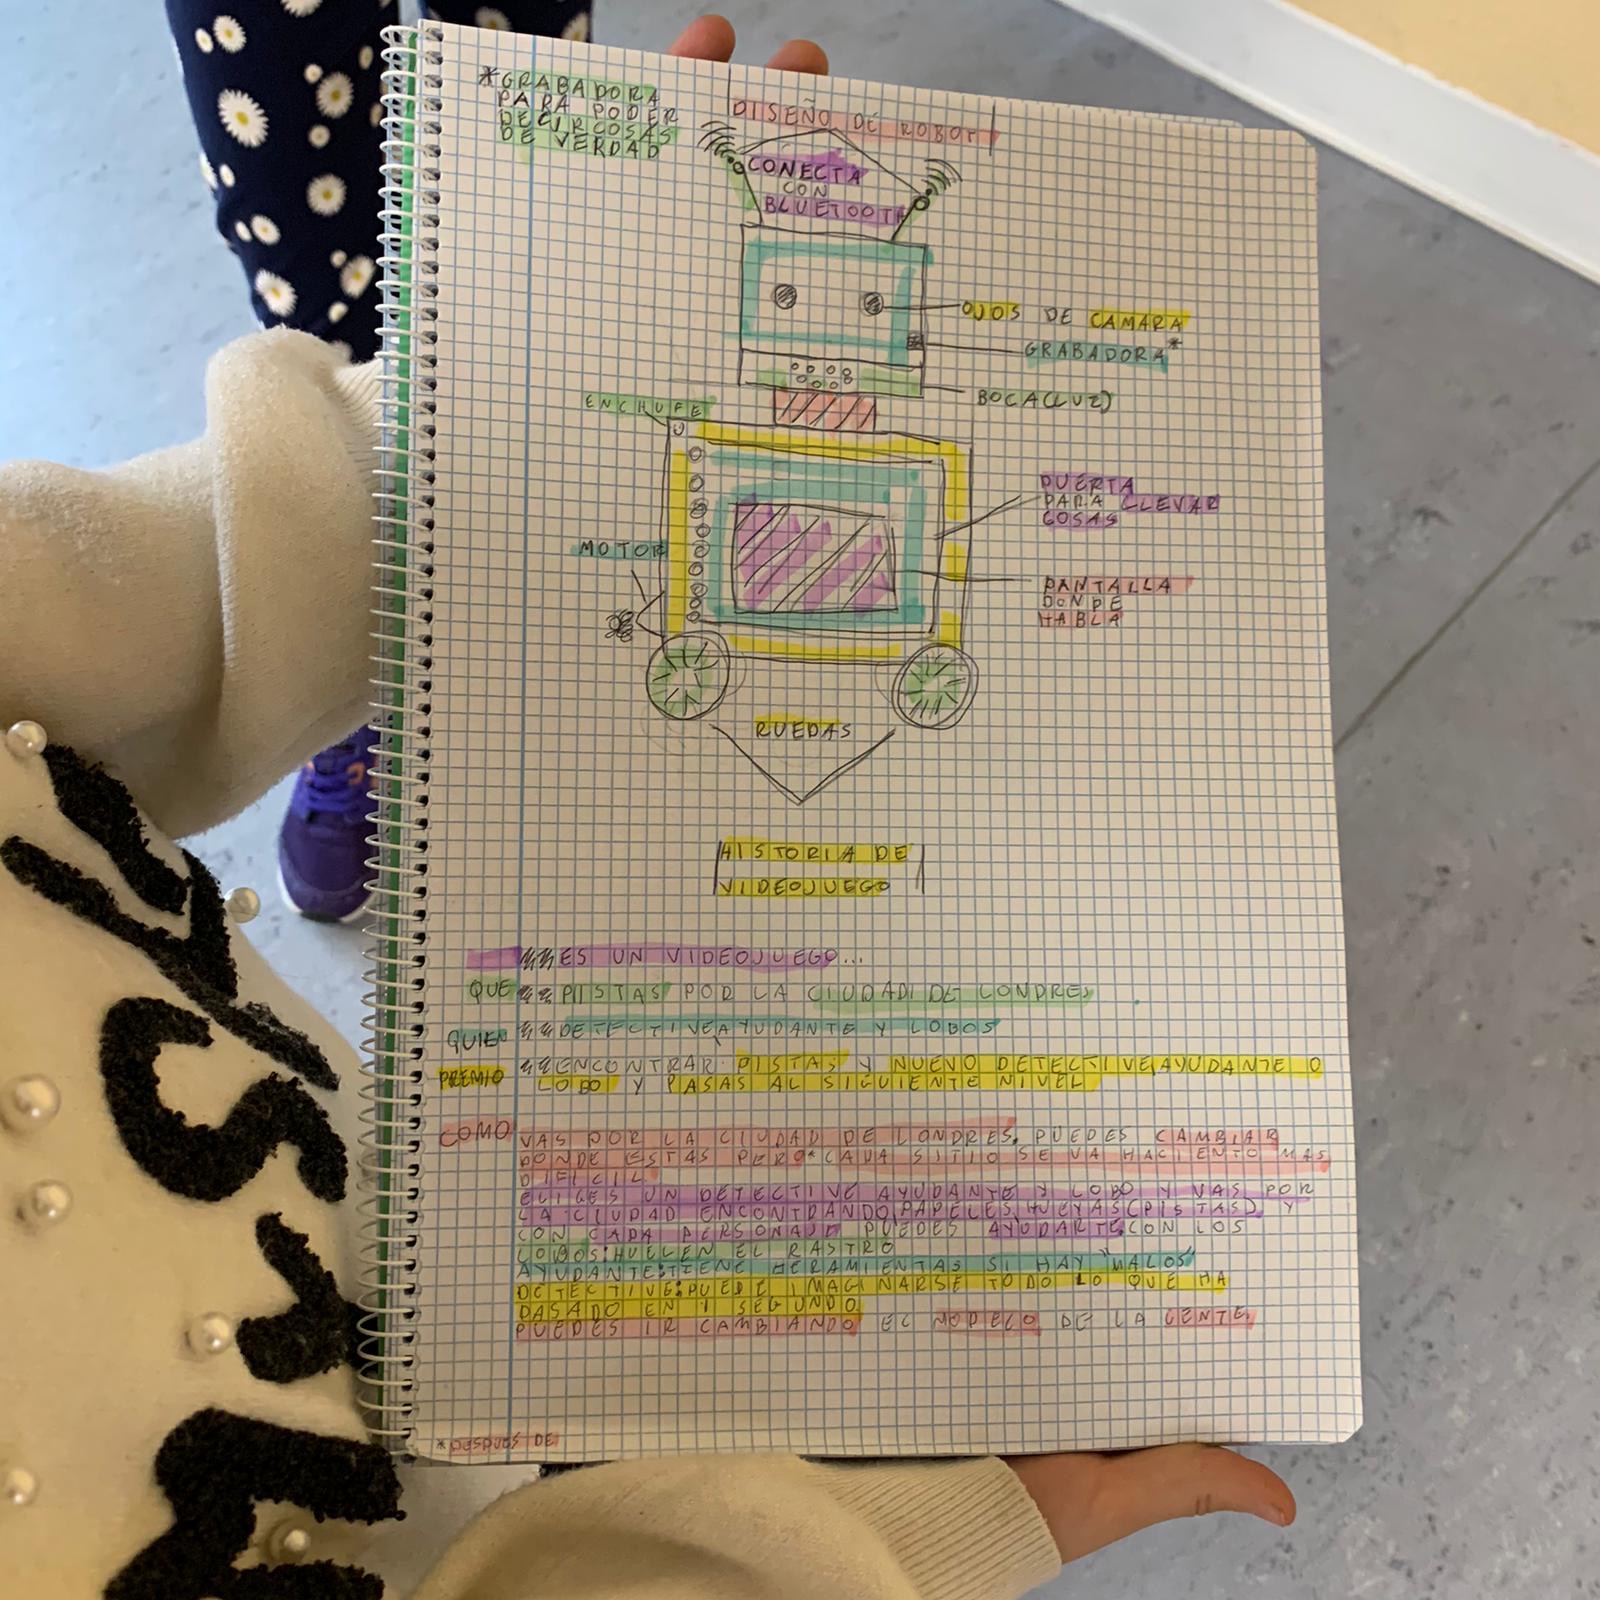 *GRABADORA
PARA PODER
DECIR COSAS
DE VERDAD
DISEÑO DE ROBOT
CONECTA
CON
BLUETOOTH
OJOS DE CAMARA
GRABADORA*
BOCA(LUZ)
ENCHUFE
PUERTA
PARA LLEVAR
COSAS
MOTOR
PANTALLA
DONDE
HABLA
RUEDAS
HISTORIA DE
VIDEOJUEGO
ES UN VIDEOJUEGO...
QUE PISTAS POR LA CIUDAD DE LONDRES
QUIEN DETECTIVE, AYUDANTE Y LOBOS
PREMIO ENCONTRAR PISTAS Y NUEVO DETECTIVE, AYUDANTE O
LOBO Y PASAS AL SIGUIENTE NIVEL
COMO VAS POR LA CIUDAD DE LONDRES, PUEDES CAMBIAR
DONDE ESTAS PERO* CADA SITIO SE VA HACIENTO MAS
DIFICIL.
ELIGES UN DETECTIVE AYUDANTE Y LOBO Y VAS POR
LA CIUDAD ENCONTRANDO PAPELES, HUEYAS(PISTAS) Y
CON CADA PERSONAJE PUEDES AYUDARTE, CON LOS
LOBOS:HUELEN EL RASTRO
AYUDANTE:TIENE HERAMIENTAS SI HAY "MALOS"
DETECTIVE:PUEDE IMAGINARSE TODO LO QUE HA
PASADO EN 1 SEGUNDO
PUEDES IR CAMBIANDO EL MODELO DE LA GENTE.
*DESPUES DE